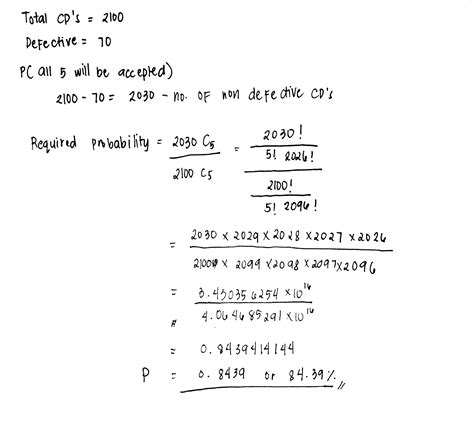 Total CD's = 2100
Defective = 70
P(all 5 will be accepted)
2100 - 70 = 2030 - no. of non defective CD's
Required probability = 2030 C5 / 2100 C5 = 2030! / 5! 2026! / 2100! / 5! 2096!
= 2030 x 2029 x 2028 x 2027 x 2026 / 2100 x 2099 x 2098 x 2097 x 2096
= 3.430356254 x 10^16 / 4.064685291 x 10^16
= 0.8439414144
P = 0.8439 or 84.39%